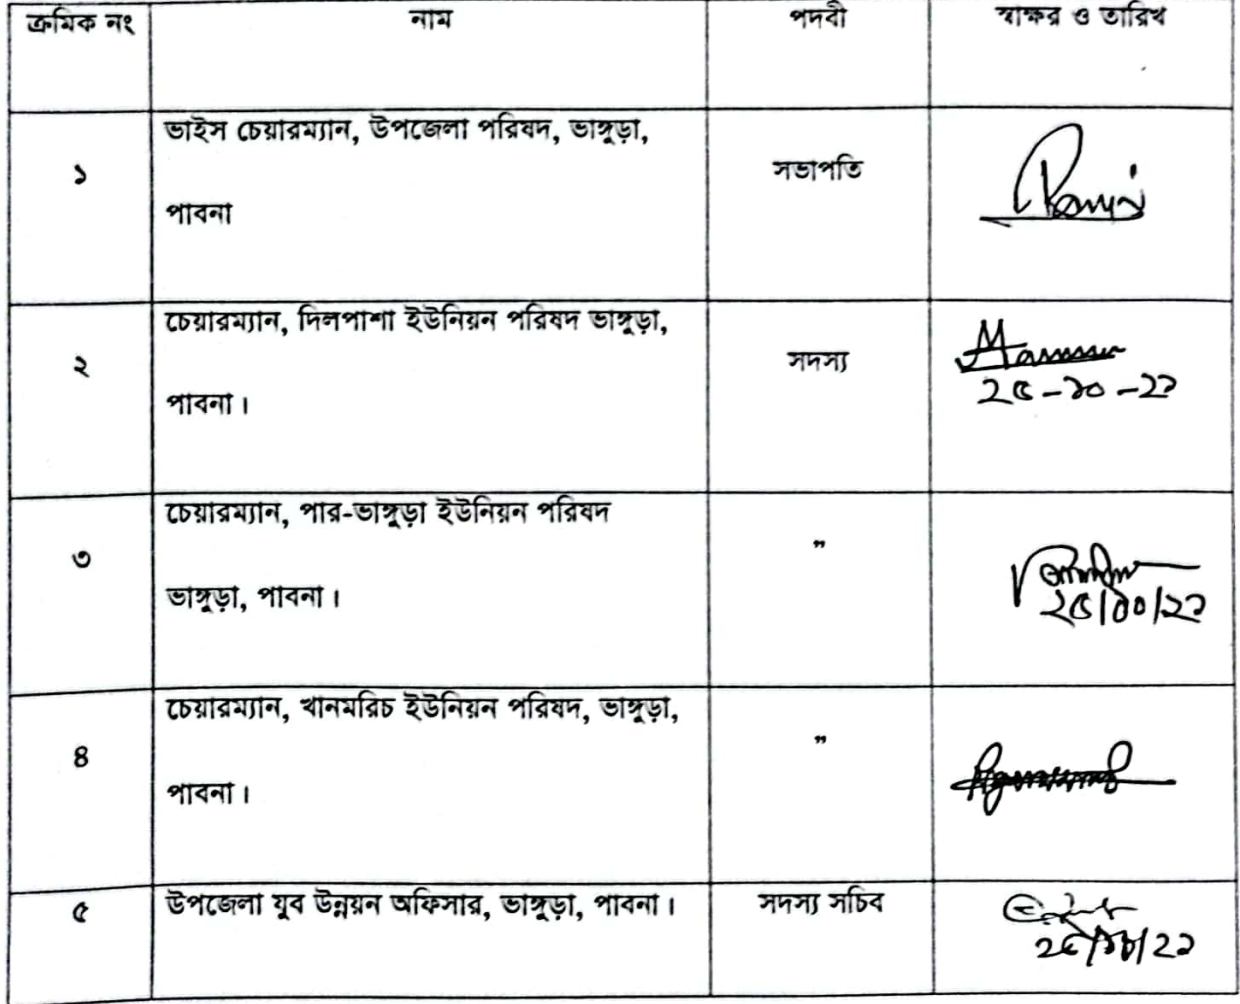 ক্রমিক নং নাম পদবী স্বাক্ষর ও তারিখ
ভাইস চেয়ারম্যান, উপজেলা পরিষদ, ভাঙ্গুড়া,
১ সভাপতি
পাবনা
চেয়ারম্যান, দিলপাশা ইউনিয়ন পরিষদ ভাঙ্গুড়া,
২ সদস্য
২৫-১০-২১
পাবনা।
চেয়ারম্যান, পার-ভাঙ্গুড়া ইউনিয়ন পরিষদ
৩ "
ভাঙ্গুড়া, পাবনা।
২৫/১০/২১
চেয়ারম্যান, খানমরিচ ইউনিয়ন পরিষদ, ভাঙ্গুড়া,
৪ "
পাবনা।
৫ উপজেলা যুব উন্নয়ন অফিসার, ভাঙ্গুড়া, পাবনা। সদস্য সচিব